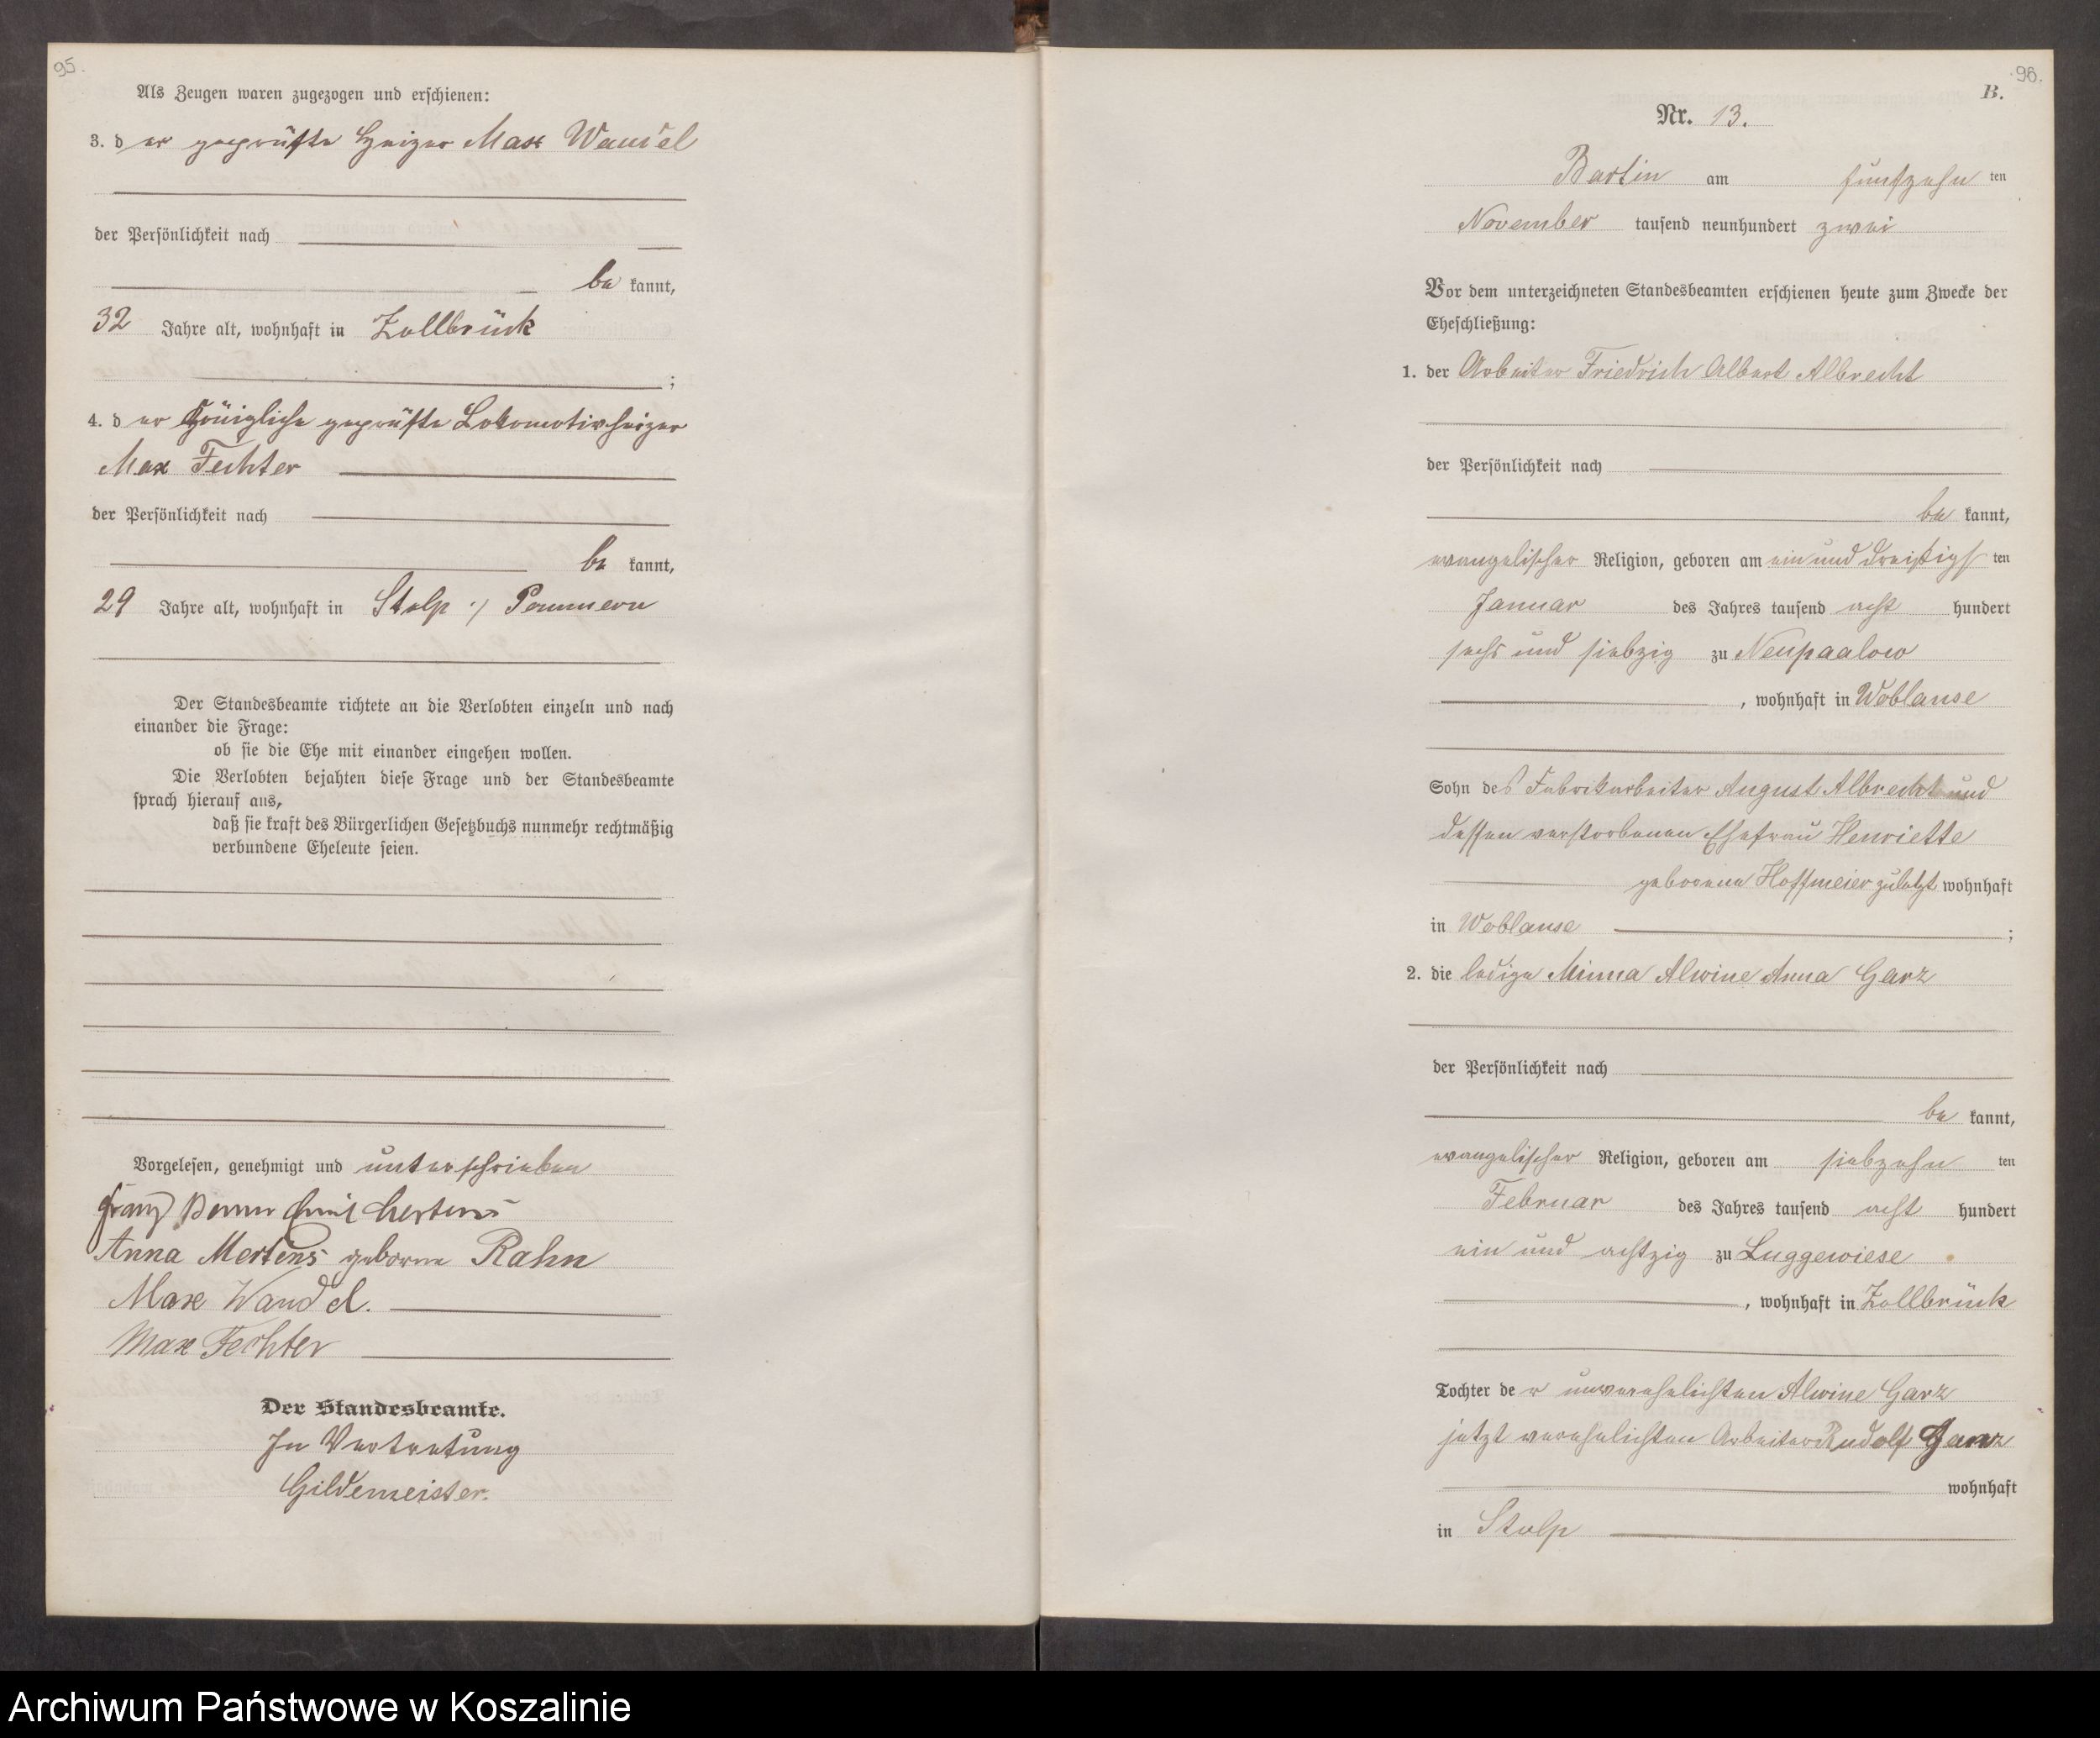 95.
Als Zeugen waren zugezogen und erschienen:
3. der geprüfte Heizer Max Wandel
der Persönlichkeit nach
be kannt,
32 Jahre alt, wohnhaft in Zollbrück
;
4. der Königliche geprüfte Lokomotivheizer
Max Fechter
der Persönlichkeit nach
be kannt,
29 Jahre alt, wohnhaft in Stolp i/ Pommern
Der Standesbeamte richtete an die Verlobten einzeln und nach
einander die Frage:
ob sie die Ehe mit einander eingehen wollen.
Die Verlobten bejahten diese Frage und der Standesbeamte
sprach hierauf aus,
daß sie kraft des Bürgerlichen Gesetzbuchs nunmehr rechtmäßig
verbundene Eheleute seien.
Vorgelesen, genehmigt und unterschrieben
Franz Emil Mertens
Anna Mertens geborne Rahn
Max Wandel.
Max Fechter
Der Standesbeamte.
In Vertretung
Gildemeister.
96.
B.
Nr. 13.
Bartin am fünfzehn ten
November tausend neunhundert zwei
Vor dem unterzeichneten Standesbeamten erschienen heute zum Zwecke der
Eheschließung:
1. der Arbeiter Friedrich Albert Albrecht
der Persönlichkeit nach
be kannt,
evangelischer Religion, geboren am ein und dreißigs ten
Januar des Jahres tausend acht hundert
sechs und siebzig zu Neupaalow
, wohnhaft in Woblanse
Sohn des Fabrikarbeiter August Albrecht und
dessen verstorbenen Ehefrau Henriette
geborene Hoffmeier zuletzt wohnhaft
in Woblanse ;
2. die ledige Minna Alwine Anna Garz
der Persönlichkeit nach
be kannt,
evangelischer Religion, geboren am siebzehn ten
Februar des Jahres tausend acht hundert
ein und achtzig zu Luggewiese
, wohnhaft in Zollbrück
Tochter der unverehelichten Alwine Garz
jetzt verehelichten Arbeiter Rudolf Janz
wohnhaft
in Stolp
Archiwum Państwowe w Koszalinie